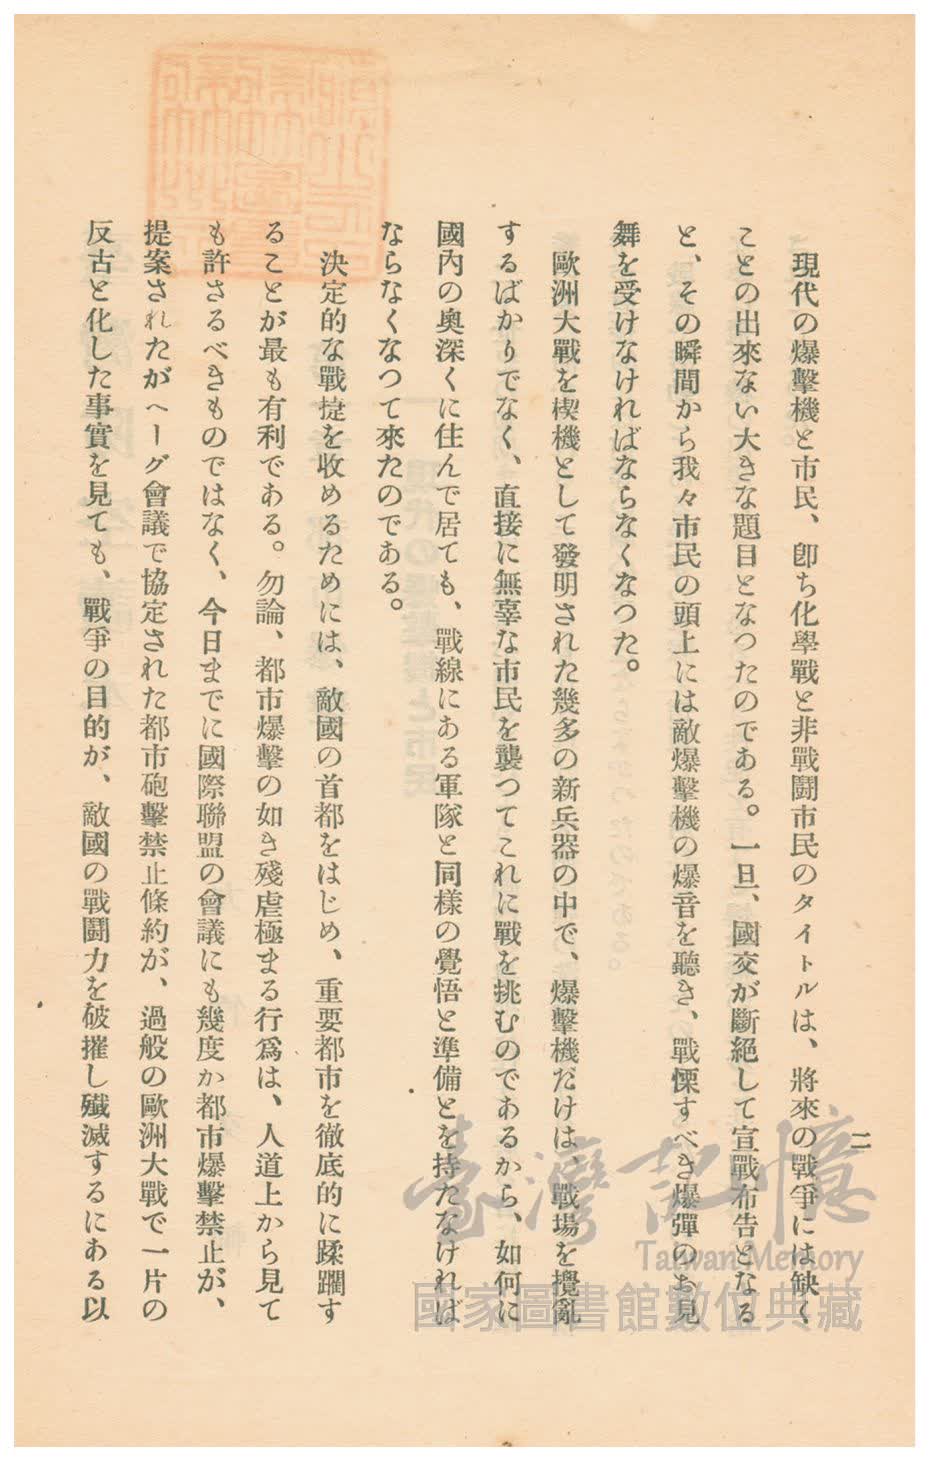 二
現代の爆擊機と市民、卽ち化學戰と非戰鬪市民のタイトルは、將來の戰爭には缺く
ことの出來ない大きな題目となつたのである。一旦、國交が斷絕して宣戰布吿となる
と、その瞬間から我々市民の頭上には敵爆擊機の爆音を聽き、戰慄すべき爆彈のお見
舞を受けなければならなくなつた。
歐洲大戰を楔機として發明された幾多の新兵器の中で、爆擊機だけは、戰場を攪亂
するばかりでなく、直接に無辜な市民を襲つてこれに戰を挑むのであるから、如何に
國內の奧深くに住んで居ても、戰線にある軍隊と同樣の覺悟と準備とを持たなければ
ならなくなつて來たのである。
決定的な戰捷を收めるためには、敵國の首都をはじめ、重要都市を徹底的に蹂躙す
ることが最も有利である。勿論、都市爆擊の如き殘虐極まる行爲は、人道上から見て
も許さるべきものではなく、今日までに國際聯盟の會議にも幾度か都市爆擊禁止が、
提案されたがヘーグ會議で協定された都市砲擊禁止條約が、過般の歐洲大戰で一片の
反古と化した事實を見ても、戰爭の目的が、敵國の戰鬪力を破摧し殲滅するにある以
臺灣記憶
Taiwan Memory
國家圖書館數位典藏